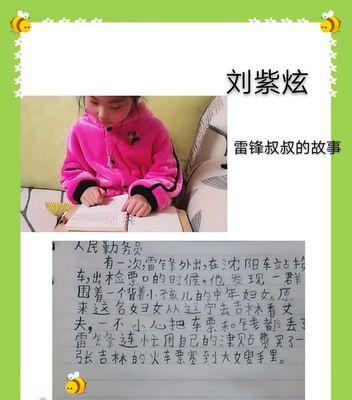 刘紫炫
雷锋叔叔的故事
人民勤务员
有一次,雷锋外出,在沈阳车站
车,出检票口的时候,他发现一群
围着一个背着小孩儿的中年妇女。原
来这名妇女从辽宁去吉林看丈
夫,一不小心把车票和钱都丢了
雷锋连忙用自己的津贴费买了一
张吉林的火车票塞到大嫂手里。